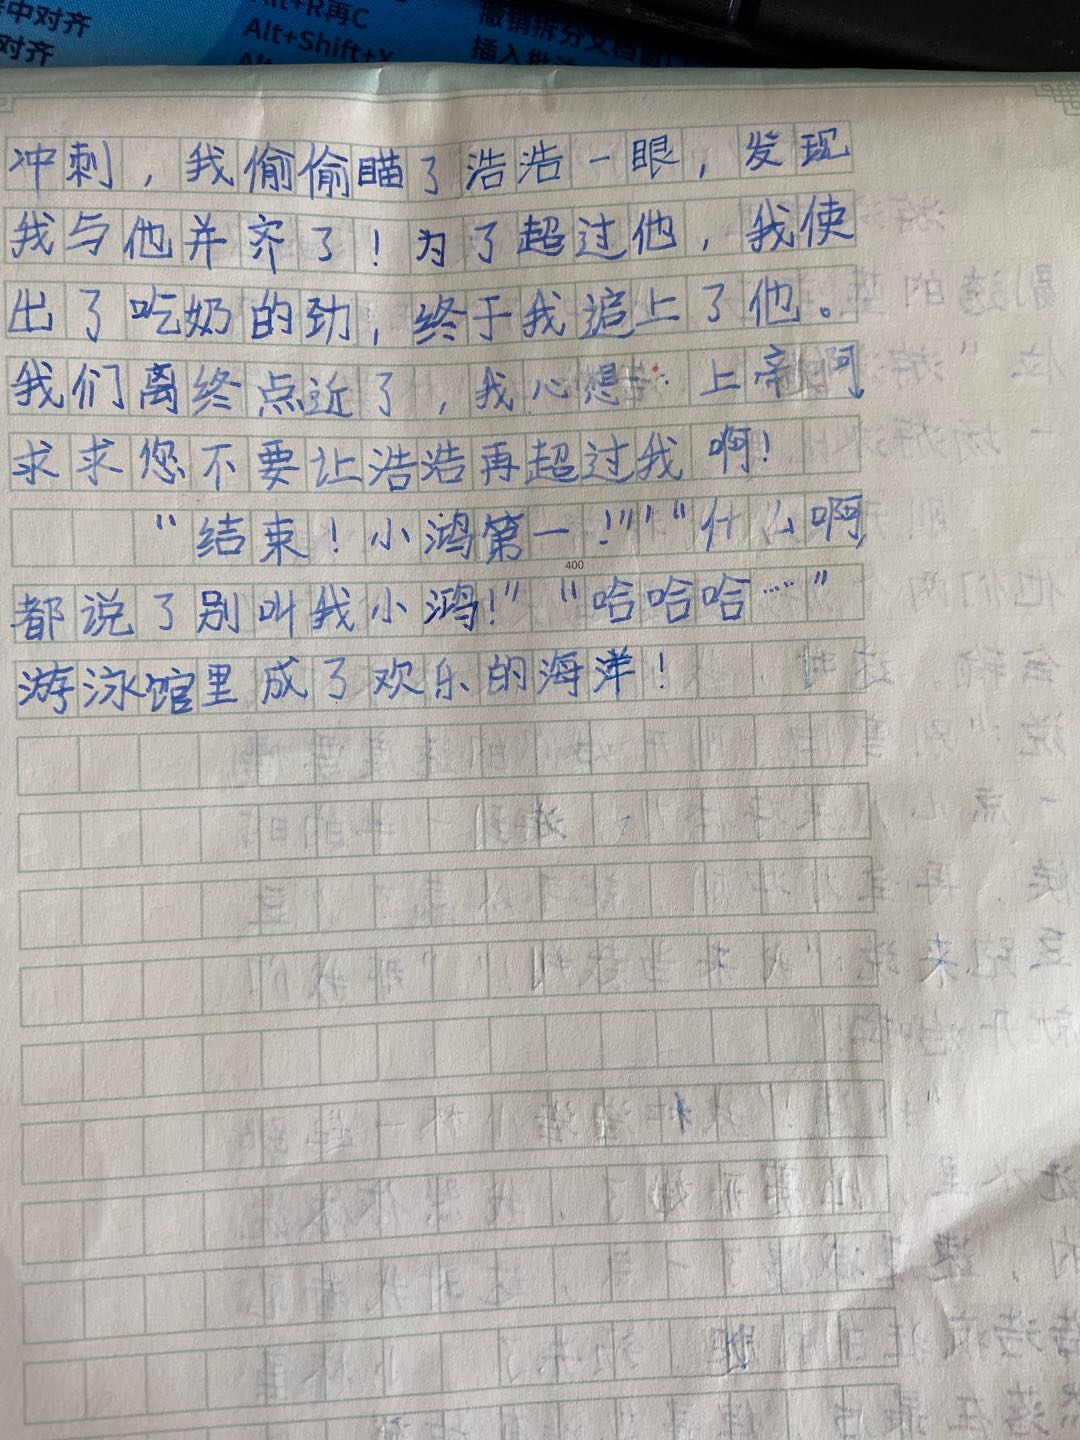 中对齐
Alt+R再C
对齐
Alt+Shift+X
撤销拆分文档窗口
冲刺，我偷偷瞄了浩浩一眼，发现
我与他并齐了！为了超过他，我使
出了吃奶的劲，终于我追上了他。
我们离终点近了，我心想：上帝啊
求求您不要让浩浩再超过我啊！
“结束！小鸿第一！”“什么啊，
400
都说了别叫我小鸿！”“哈哈哈……”
游泳馆里成了欢乐的海洋！